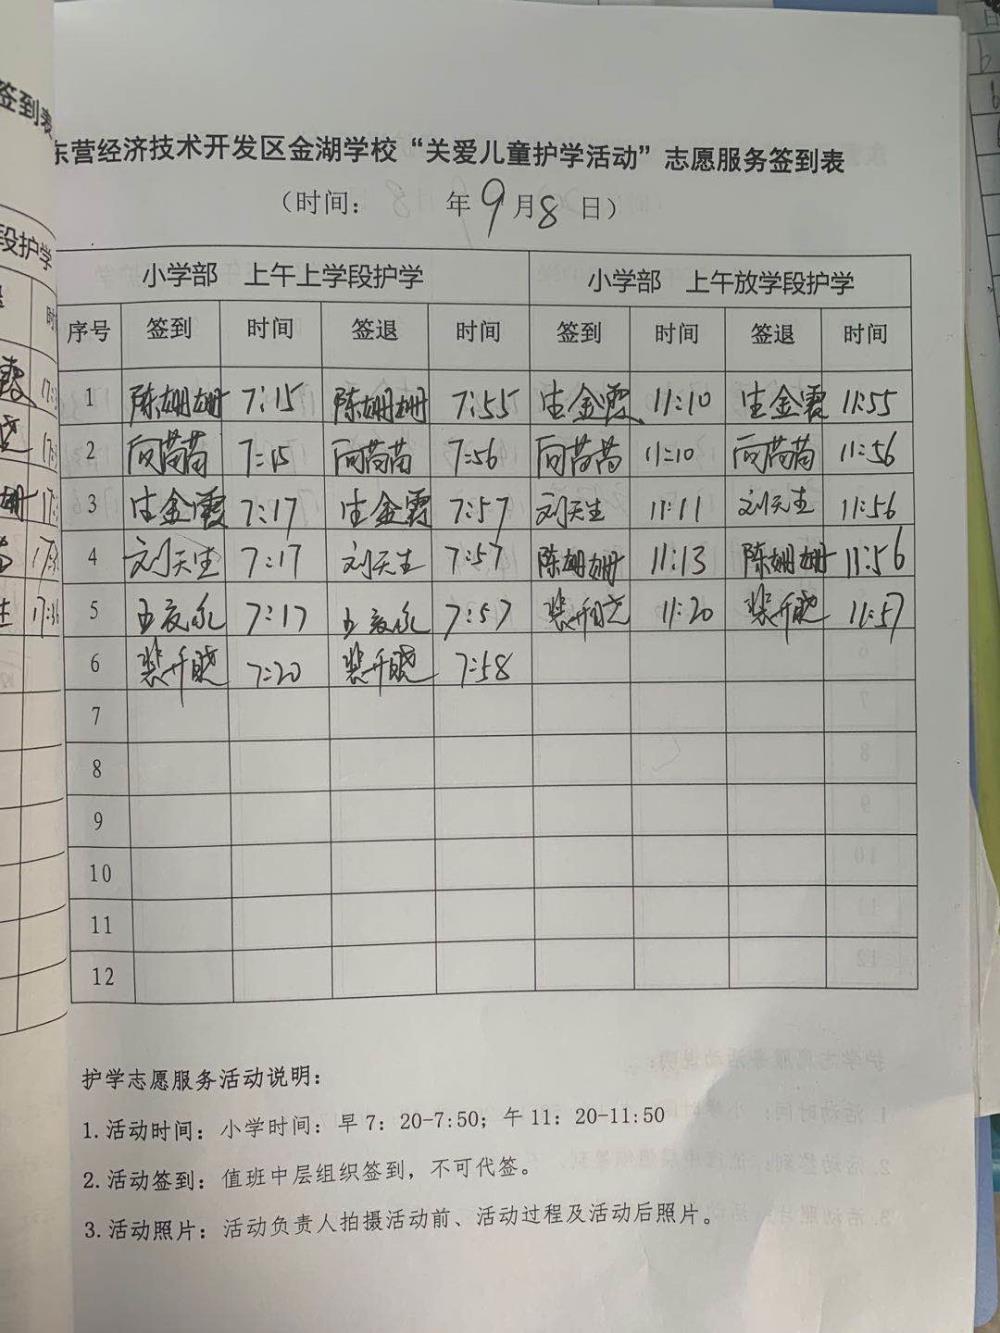 签到表
东营经济技术开发区金湖学校“关爱儿童护学活动”志愿服务签到表
（时间： 年 9 月 8 日）
段护学
小学部 上午上学段护学 小学部 上午放学段护学
序号 签到 时间 签退 时间 签到 时间 签退 时间
1 陈姗姗 7:15 陈姗姗 7:55 生金霞 11:10 生金霞 11:55
2 苘苗 7:15 苘苗 7:56 苘苗 11:10 苘苗 11:56
3 生金霞 7:17 生金霞 7:57 刘天生 11:11 刘天生 11:56
4 刘天生 7:17 刘天生 7:57 陈姗姗 11:13 陈姗姗 11:56
5 7:17 7:57 11:20 11:57
6 7:20 7:58
7
8
9
10
11
12
护学志愿服务活动说明：
1.活动时间：小学时间：早7：20-7:50；午11：20-11:50
2.活动签到：值班中层组织签到，不可代签。
3.活动照片：活动负责人拍摄活动前、活动过程及活动后照片。